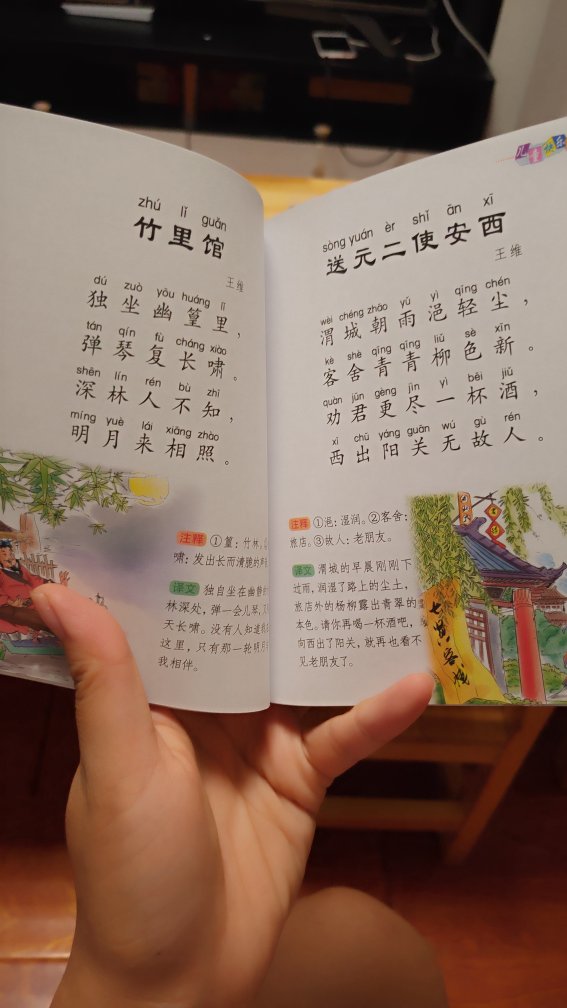 zhú lǐ guǎn
竹里馆
王维
dú zuò yōu huáng lǐ
独坐幽篁里，
tán qín fù cháng xiào
弹琴复长啸。
shēn lín rén bù zhī
深林人不知，
míng yuè lái xiāng zhào
明月来相照。
注释 ①篁：竹林。
啸：发出长而清脆的声
译文 独自坐在幽静的
林深处，弹一会儿琴，又
天长啸。没有人知道我
这里，只有那一轮明月
我相伴。
儿童快乐
sòng yuán èr shǐ ān xī
送元二使安西
王维
wèi chéng zhāo yǔ yì qīng chén
渭城朝雨浥轻尘，
kè shè qīng qīng liǔ sè xīn
客舍青青柳色新。
quàn jūn gèng jìn yì bēi jiǔ
劝君更尽一杯酒，
xī chū yáng guān wú gù rén
西出阳关无故人。
注释 ①浥：湿润。②客舍：
旅店。③故人：老朋友。
译文 渭城的早晨刚刚下
过雨，润湿了路上的尘土，
旅店外的杨柳露出青翠的
本色。请你再喝一杯酒吧，
向西出了阳关，就再也看不
见老朋友了。
七贤客栈